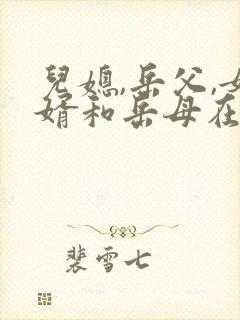 兒媳,岳父,女
婿和岳母在
裴雪七